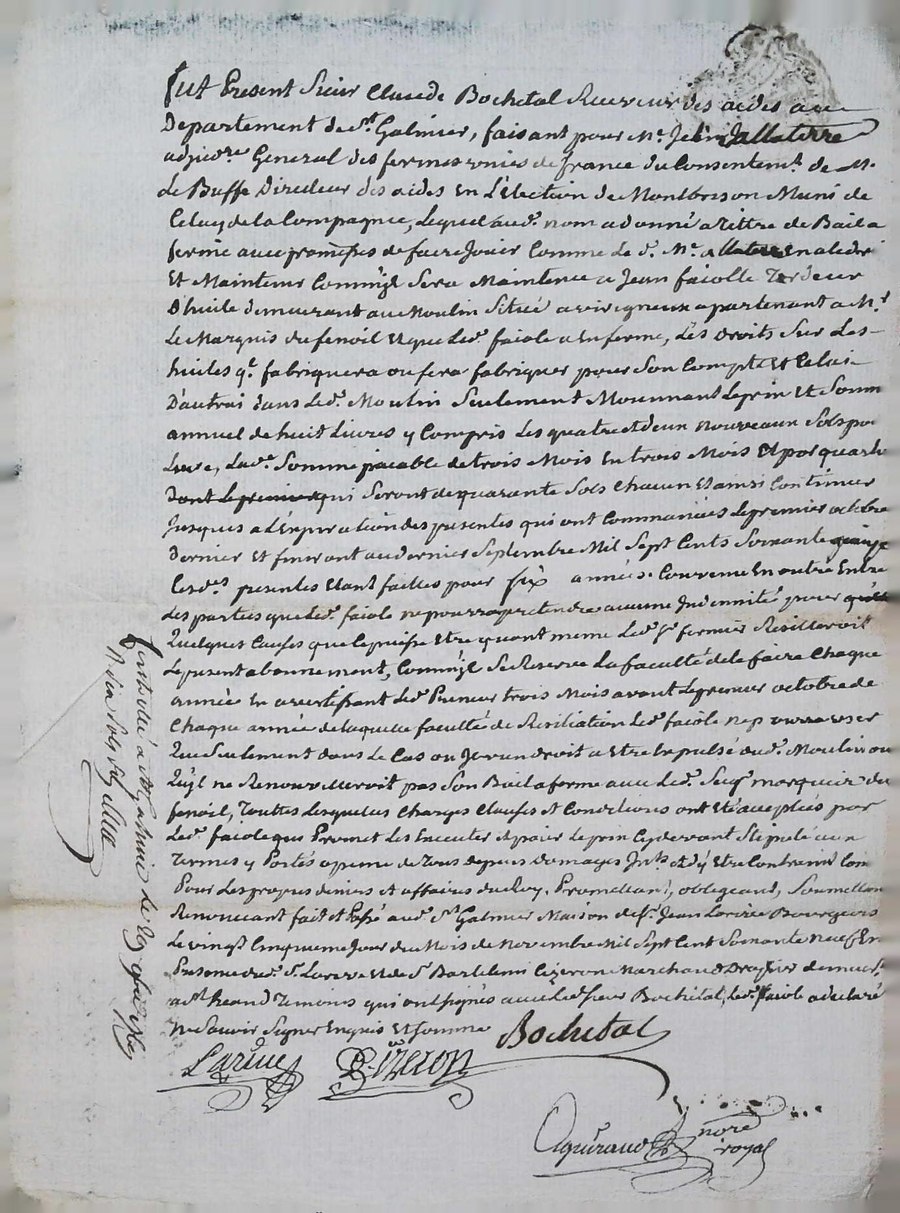 fut Present Sieur Claude Bochetal Receveur des aides au
Departement de St. Galmier, faisant pour Me. Jean Jallaterre
adjudre. General des fermes unies de france du Consentemt. de Mr.
de Buffe Directeur des aides En L'Election de Montbrison Muni de
Celuy de la Compagnie, Lequel aud. nom a donné a tittre de Bail a
ferme avec promesses de faire Jouir Comme Le d. Me.
Et Maintenir Comm'il Sera Maintenu a Jean faiolle
D'huile demeurant au Moulin Situé a apartenant a Mr.
Le Marquis du fenoil Et que Led. faiole a En ferme, Les Droits Sur Les
huiles q'il fabriquera ou fera fabriquer pour Son Compte Et Celui
D'autrui dans Led. Moulin Seulement Moiennant Le prix Et Somm
annuel de huit Livres y Compris Les quatre et deux nouveaux Sols po
Livre, Lad. Somme paiable de trois Mois En trois Mois Et par quart
Dont Le premier qui Seront de quarante Sols Chacun Et ainsi Continuer
Jusques a L'Expiration des presentes qui ont Commancées Le premier octobre
dernier Et finiront au dernier Septembre Mil Sept Cents Soixante quinze
Lesd. presentes Etant faittes pour six années. Convenu En outre Entre
Les parties que Led. faiole ne pourra pretendre aucune Indemnité pour
Quelques Causes que Ce puisse Etre quant meme Led. Sr. fermier Resilleroit
Le present abonnement, Comm'il Se Reserve La faculté de le faire Chaque
année En avertissant Led. Preneur trois Mois avant Le premier octobre de
Chaque année de laquelle faculté de Resiliation Led. faiole ne pourra user
Que Seulement dans Le Cas ou Il viendroit a Etre Expulsé dud. Moulin ou
Qu'il ne Renouvelleroit pas Son Bail a ferme avec Led. Seigr. marquis de
fenoil, Toutes Lesquelles Charges Clauses et Conditions ont été acceptées par
Led. faiole qui Promet Les Executer Et paier Le prix Cy devant Stipulé aux
Termes y Portés a peine de Tous depens domages Ints. Et d'y Etre Contraint Com
Pour Les propres deniers Et affaires du Roy, Promettant, obligeant, Soumettan
Renonceant fait Et Passé aud. St. Galmier Maison de Sr. Jean Bourgeois
Le vingt Cinquieme Jour du Mois de Novembre Mil Sept Cent Soixante neuf En
Presence dud. Sr. Et de Sr. Bartelemi Marchand demeurt.
Temoins qui ont Signés avec Led. Sieur Bochetal, Led. faiole a declaré
ne Savoir Signer Enquis Et Sommé
Bochetal
nore
royal